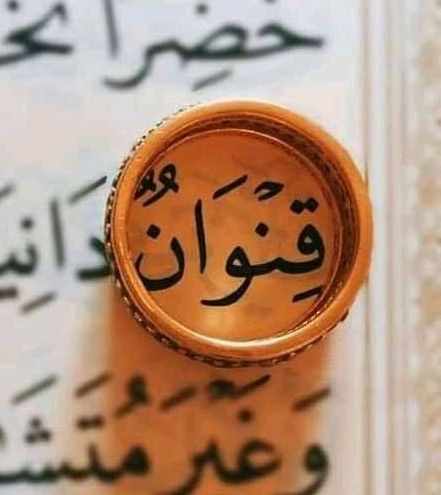 خَضِرًا نخ
قِنْوَانٌ دَانِيَـ
وَغَيْرَ مُتَشَـ